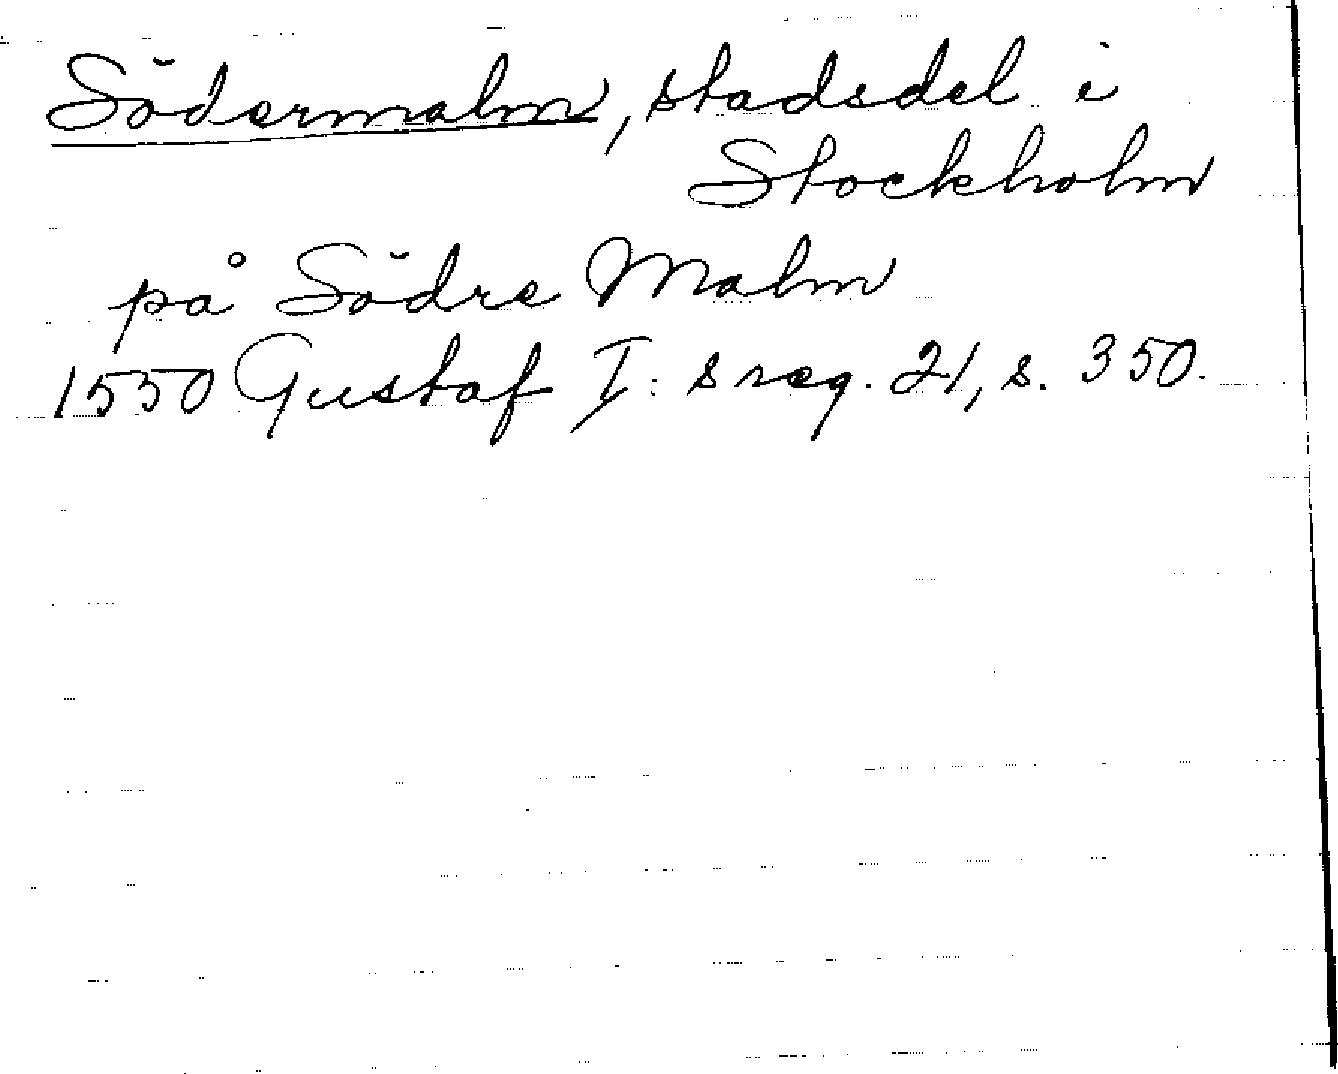 Södermalm, stadsdel i
Stockholm
på Södre Malm
1550 Gustaf I:s reg. 21, s. 350.